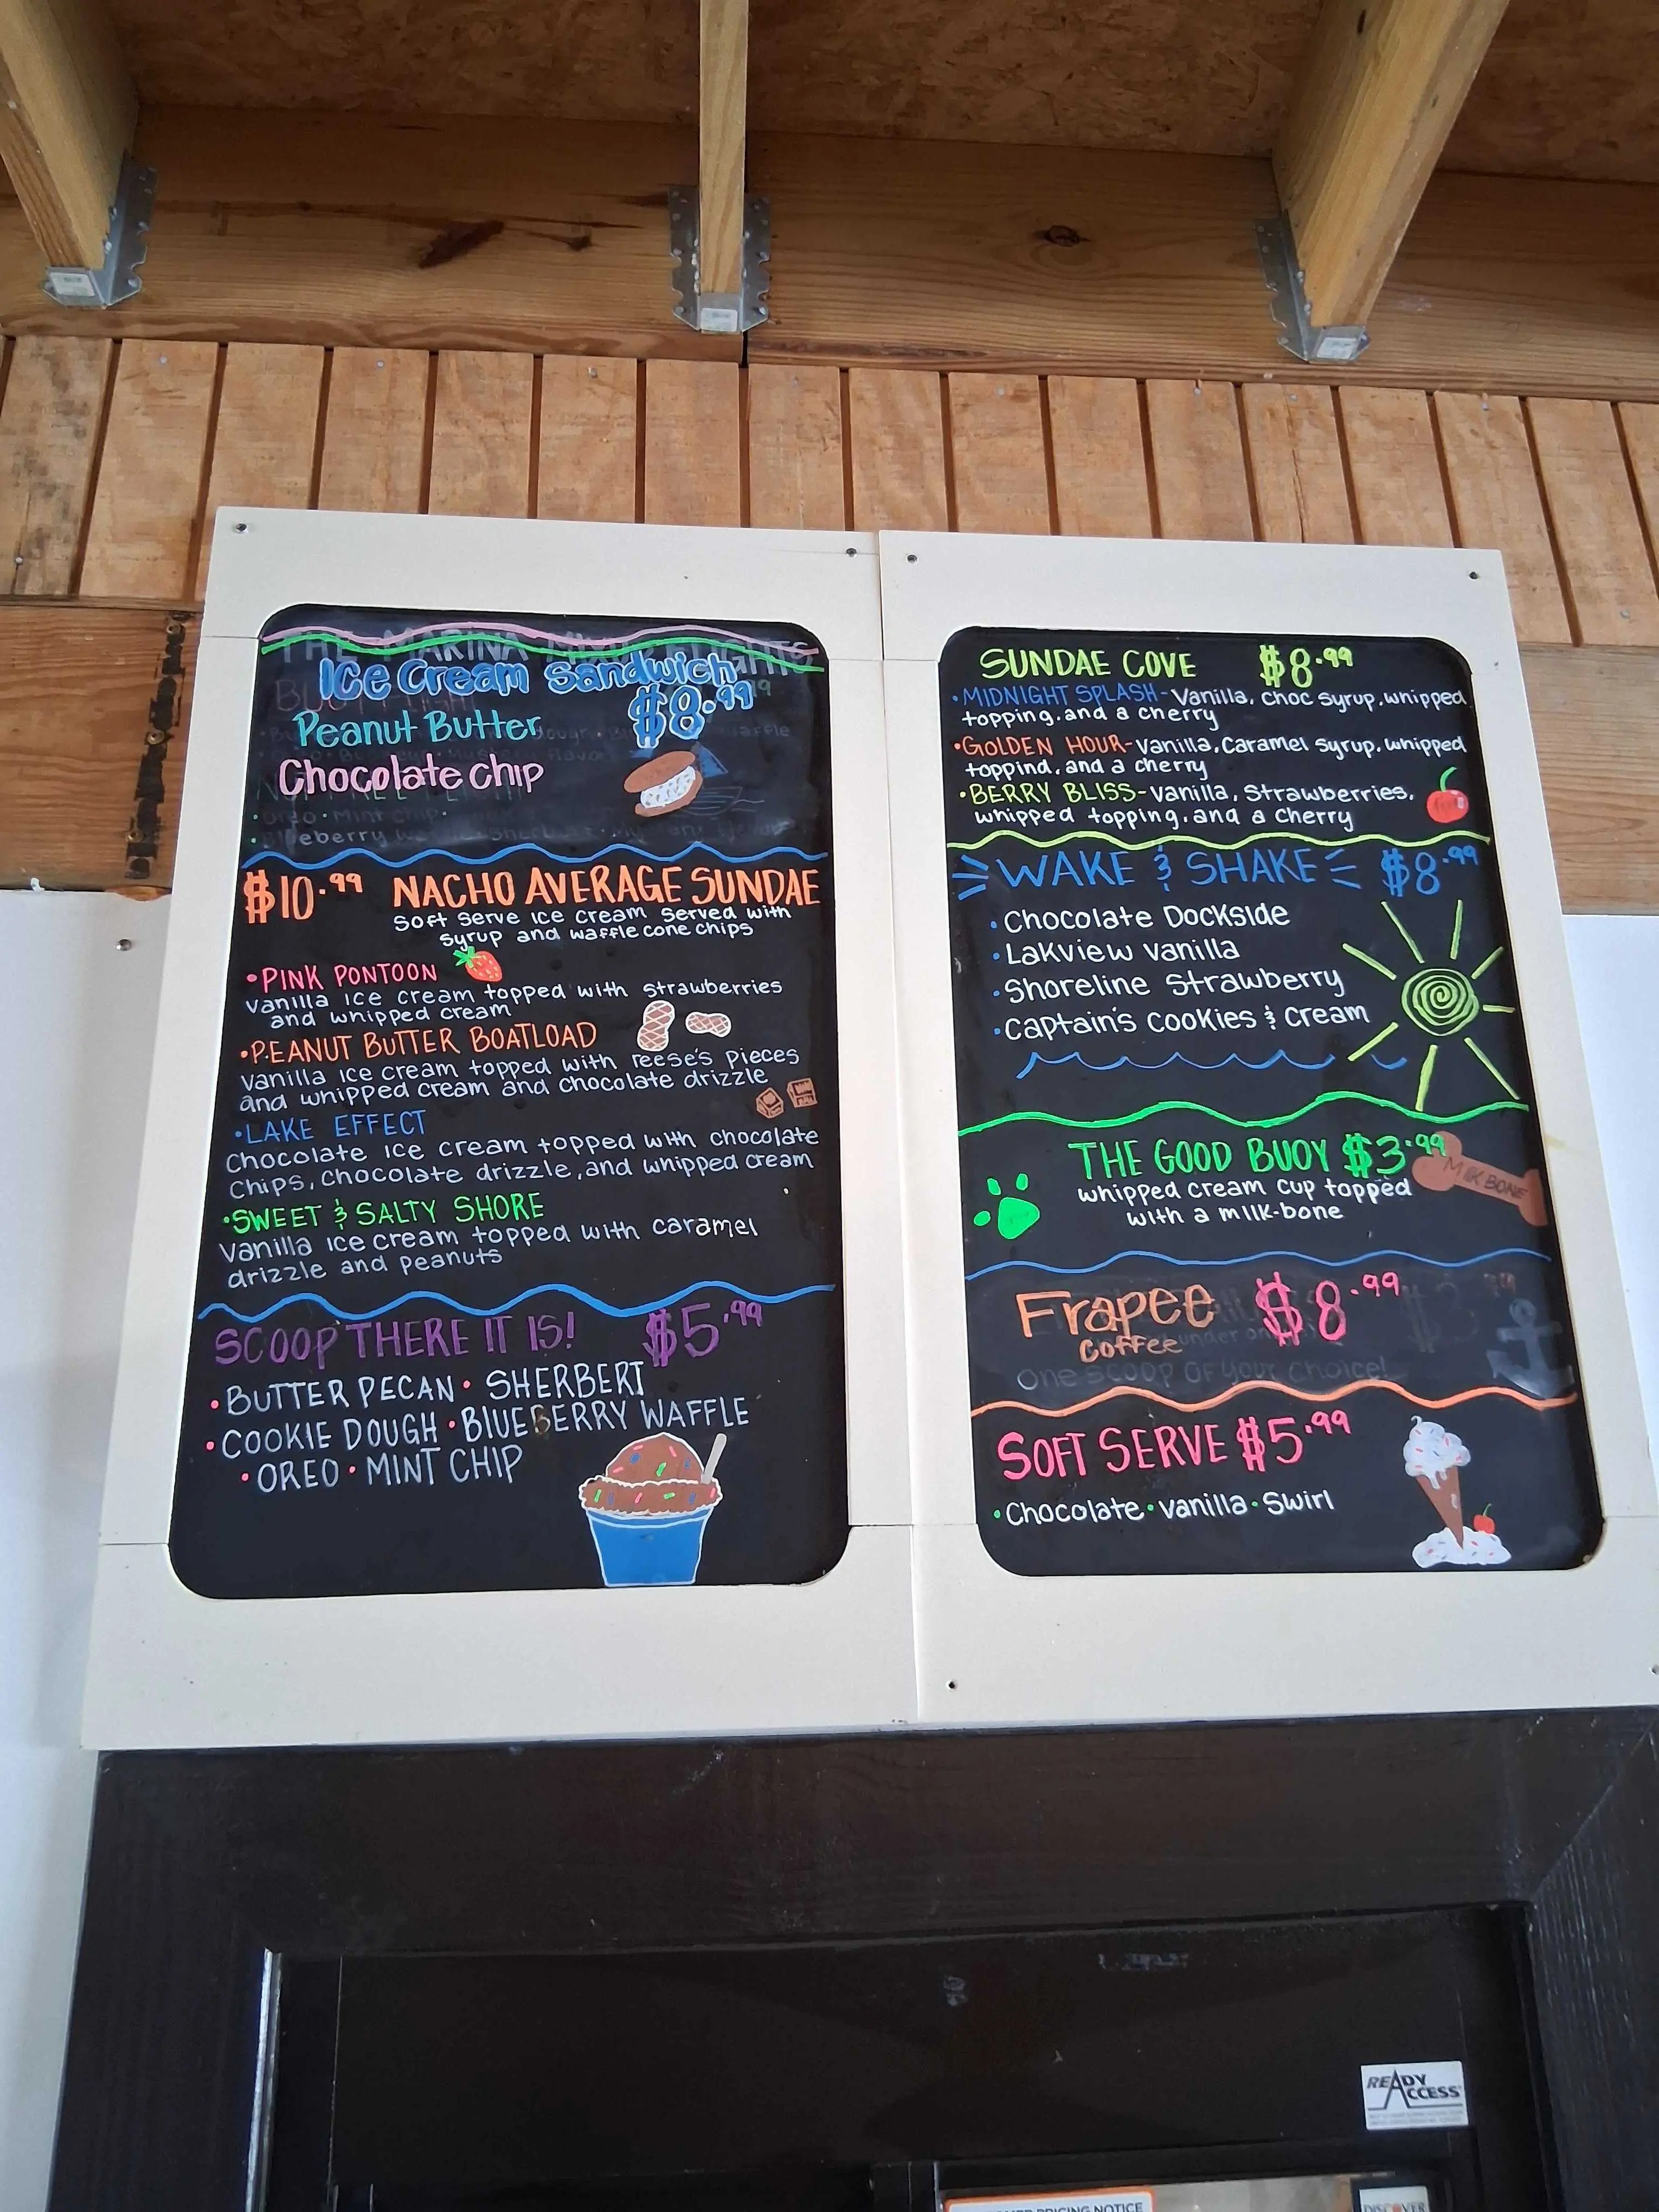 THE MARINA
Ice Cream Sandwich
$8.99
Peanut Butter
Chocolate chip
Oreo · Mint chip
$10.99 NACHO AVERAGE SUNDAE
Soft serve ice cream served with
syrup and waffle cone chips
• PINK PONTOON
Vanilla ice cream topped with strawberries
and whipped cream
• PEANUT BUTTER BOATLOAD
Vanilla ice cream topped with reese's pieces
and whipped cream and chocolate drizzle
• LAKE EFFECT
Chocolate ice cream topped with chocolate
chips, chocolate drizzle, and whipped cream
• SWEET & SALTY SHORE
Vanilla ice cream topped with caramel
drizzle and peanuts
SCOOP THERE IT IS! $5.99
• BUTTER PECAN • SHERBERT
• COOKIE DOUGH • BLUEBERRY WAFFLE
• OREO • MINT CHIP
SUNDAE COVE $8.99
• MIDNIGHT SPLASH - Vanilla, choc syrup, whipped
topping, and a cherry
• GOLDEN HOUR - Vanilla, Caramel syrup, whipped
toppind, and a cherry
• BERRY BLISS - Vanilla, Strawberries,
whipped topping, and a cherry
WAKE & SHAKE $8.99
• Chocolate Dockside
• Lakview Vanilla
• Shoreline Strawberry
• Captain's Cookies & Cream
THE GOOD BUOY $3.99
MILK BONE
whipped cream cup topped
with a milk-bone
Frapee $8.99
Coffee
One scoop of your choice!
SOFT SERVE $5.99
• Chocolate • Vanilla • Swirl
READY
ACCESS
PRICING NOTICE
DISCOVER